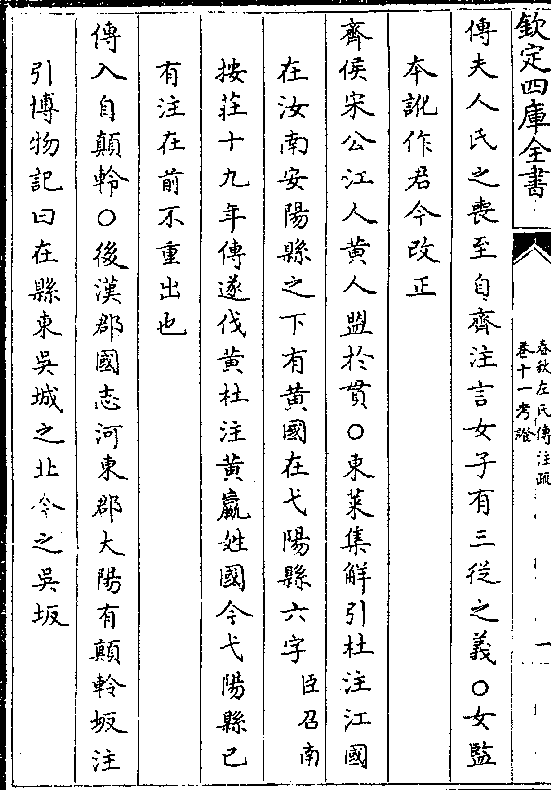 欽定四庫全書
春秋左氏傳注疏
卷十一考證
一
傳夫人氏之喪至自齊注言女子有三從之義○女監
本訛作君今改正
齊侯宋公江人黄人盟於貫○東萊集解引杜注江國
在汝南安陽縣之下有黄國在弋陽縣六字臣召南
按莊十九年傳遂伐黄杜注黄嬴姓國今弋陽縣已
有注在前不重出也
傳入自顛軨○後漢郡國志河東郡大陽有顛軨坂注
引博物記曰在縣東吳城之北今之吳坂